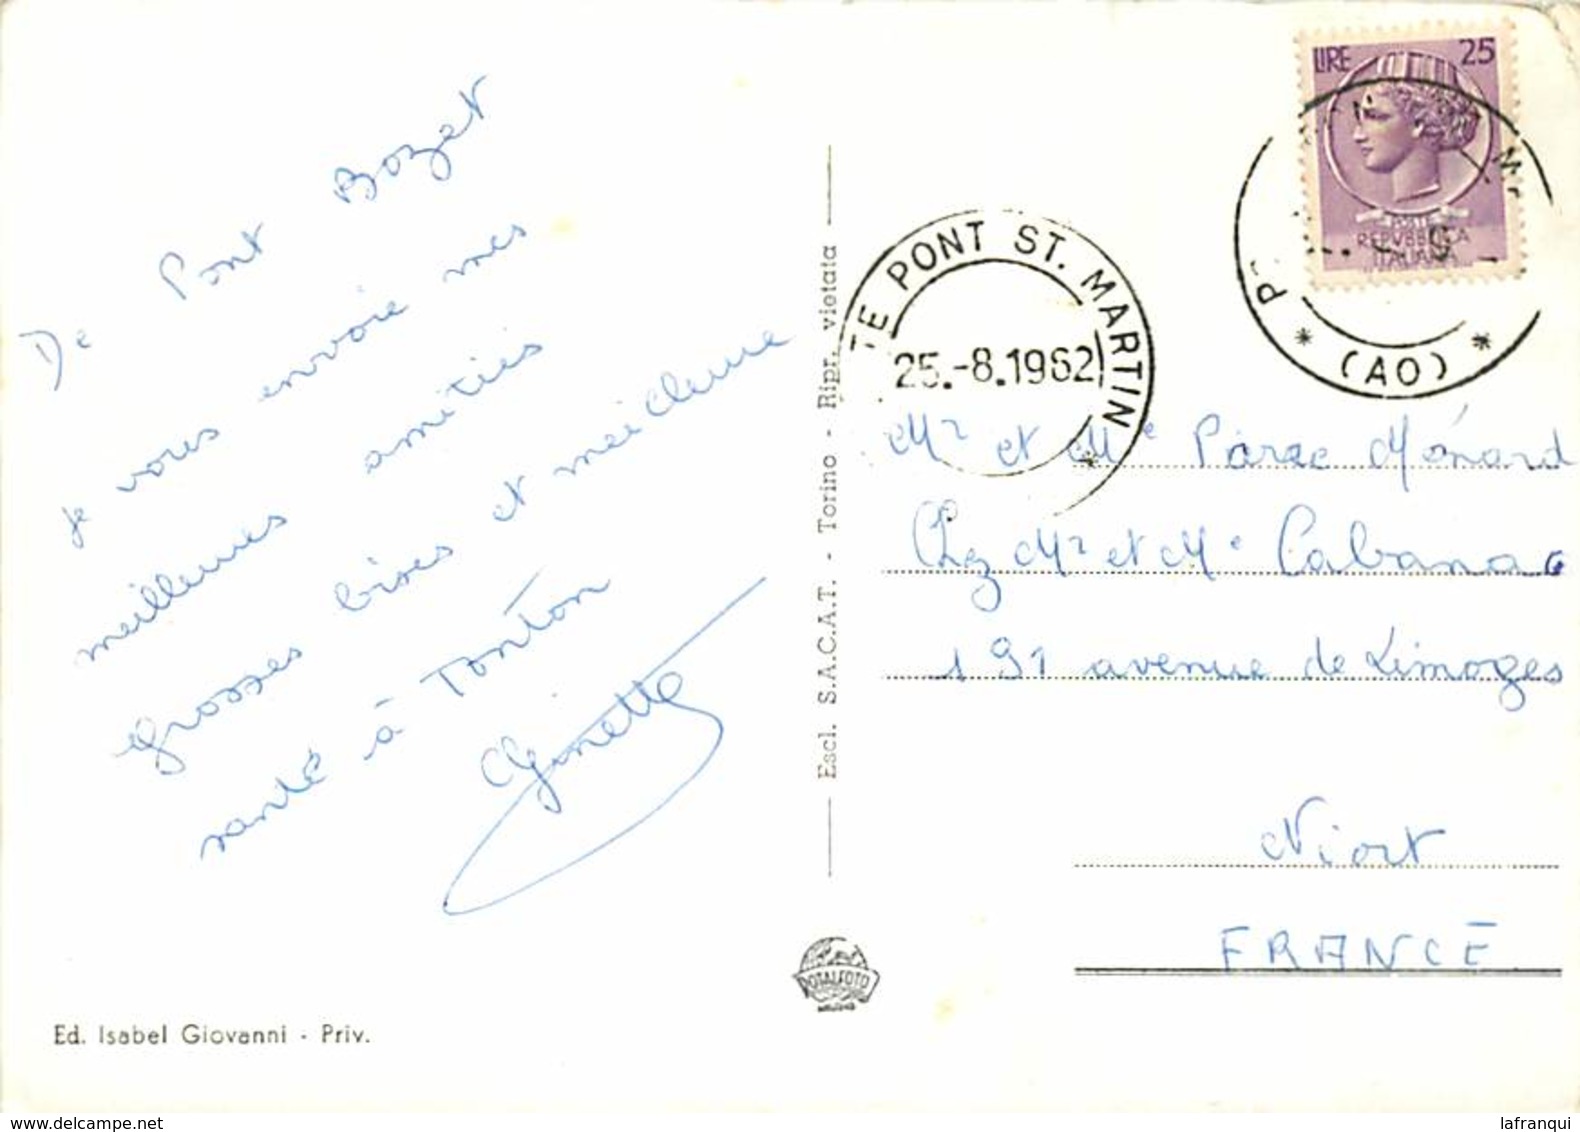 De Pont Bozet
je vous envoie mes
meilleures amitiés
grosses bises et meilleure
santé à Tonton
Ginette
Ed. Isabel Giovanni - Priv.
Escl. S.A.C.A.T. - Torino - Ripr. vietata
TE PONT ST. MARTIN
25.-8.1962
LIRE 25
POSTE
REPVBBLICA
ITALIANA
(AO)
Mr et Me Ménard
Chez Mr et Me
191 avenue de Limoges
Niort
FRANCE
ROTALFOTO
MILANO
lafranqui
www.delcampe.net